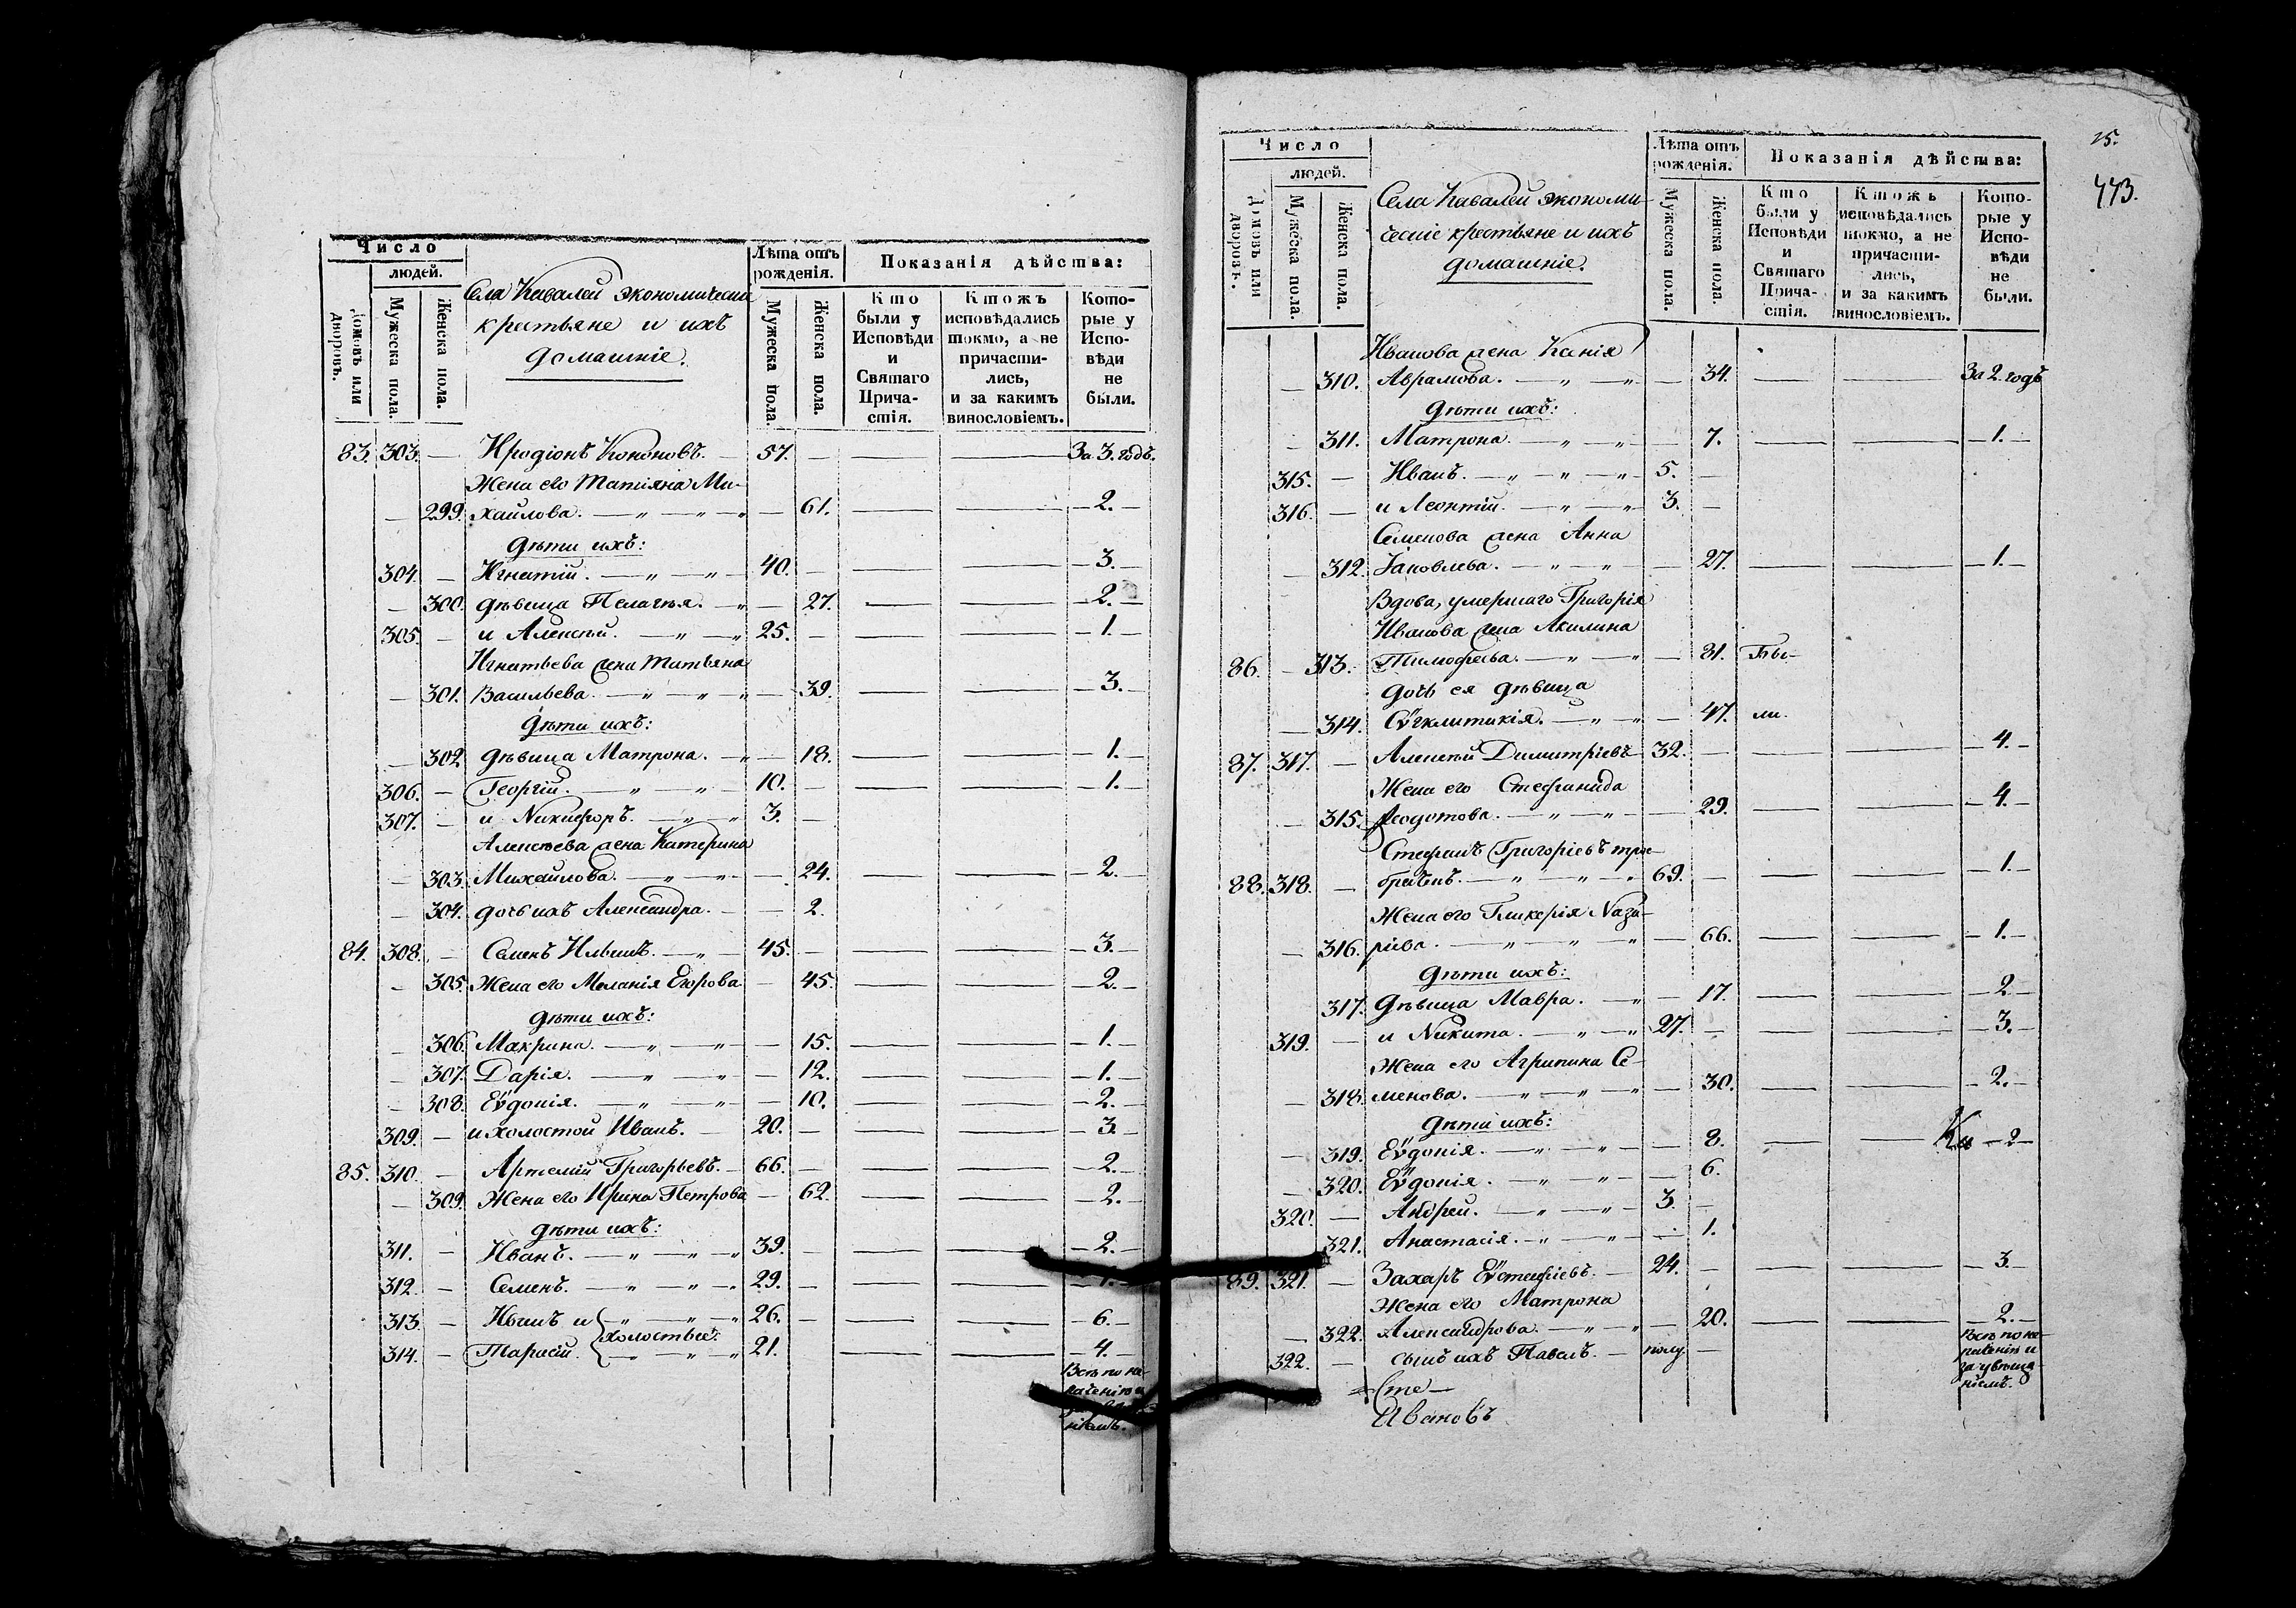 Число
людей.
Домовъ или дворовъ.
Мужеска пола.
Женска пола.
Села Кавалей экономическіе
крестьяне и ихъ
домашніе.
Лѣта отъ рожденія.
Мужеска пола.
Женска пола.
Показанія дѣйства:
Кто были у Исповѣди и Святаго Причастія.
Ктожъ исповѣдались токмо, а не причастились, и за какимъ винословіемъ.
Которые у Исповѣди не были.
83. 303. — Иродіонъ Кононовъ. — 57. — За 3. годъ.
Жена его Татіяна Ми-
— 299. хаилова. — „ — „ — 61. — 2. —
дѣти ихъ:
304. — Игнатій. — „ — „ — 40. — 3. —
— 300. дѣвица Пелагѣя. — „ — 27. — 2. —
305. — и Алексѣй. — „ — „ 25. — 1. —
Игнатьева жена Татьяна
— 301. Васильева. — „ — „ — 39. — 3. —
дѣти ихъ:
— 302. дѣвица Матрона. — „ — 18. — 1. —
306. — Георгій. — „ — „ — 10. — 1. —
307. — и Никифоръ. — „ — „ 3. —
Алексѣева жена Катерина
— 303. Михайлова. — „ — „ — 24. — 2. —
— 304. дочь ихъ Александра. — 2.
84. 308. — Семенъ Ильинъ. — „ — 45. — 3. —
— 305. Жена его Меланія Егорова — 45. — 2. —
дѣти ихъ:
— 306. Макрина. — „ — „ — 15. — 1. —
— 307. Дарія. — „ — „ — 12. — 1. —
— 308. Еѵдокія. — „ — „ — 10. — 2. —
309. — и холостой Иванъ. — 20. — 3. —
85. 310. — Артемій Григорьевъ. — 66. — 2. —
— 309. Жена его Ирина Петрова — 62. — 2. —
дѣти ихъ:
311. — Иванъ. — „ — „ — „ 39. — 2. —
312. — Семенъ. — „ — „ — „ 29. — 1. —
313. — и „ — „ — „ 26. — 6. —
холостые.
314. — Тарасій. — „ — „ 21. — 4. —
Всѣ по не-
раченію и
ніемъ.
25.
473.
Число
людей.
Домовъ или дворовъ.
Мужеска пола.
Женска пола.
Села Кавалей экономи-
ческіе крестьяне и ихъ
домашніе.
Лѣта отъ рожденія.
Мужеска пола.
Женска пола.
Показанія дѣйства:
Кто были у Исповѣди и Святаго Причастія.
Ктожъ исповѣдались токмо, а не причастились, и за какимъ винословіемъ.
Которые у Исповѣди не были.
Иванова жена Ксенія
— 310. Аврамова. — „ — „ — 34. — За 2. годъ
дѣти ихъ:
— 311. Матрона. — „ — „ — 7. — 1. —
315. — Иванъ. — „ — „ — „ 5. —
316. — и Леонтій. — „ — „ 3. —
Семенова жена Анна
— 312. Іаковлева. — „ — „ — 27. — 1. —
Вдова, умершаго Григорія
Иванова жена Акилина
86. — 313. Тимофеева. — „ — „ — 81. Бы-
дочь ея дѣвица
— 314. Сѵгклитикія. — „ — „ — 47. ли.
87. 317. — Алексѣй Димитріевъ 32. — 4. —
Жена его Стефанида
— 315. Ѳеодотова. — „ — „ — 29. — 4. —
Стефанъ Григорьевъ тре-
88. 318. — браченъ. — „ — „ — „ 69. — 1. —
Жена его Гликерія Наза-
— 316. ріева. — „ — „ — „ — 66. — 1. —
дѣти ихъ:
317. дѣвица Мавра. — „ — 17. — 2 —
319. — и Никита. — „ — „ 27. — 3. —
Жена его Агрипина Се-
— 318. менова. — „ — „ — „ — 30. — 2. —
дѣти ихъ:
— 319. Еѵдокія. — „ — „ — 8. — 2 —
— 320. Еѵдокія. — „ — „ — 6.
320. — Андрей. — „ — „ — 3. —
321. Анастасія. — „ — „ — 1.
89. 321. — Захаръ Еѵстафіевъ. — 24. — 3. —
Жена его Матрона
— 322. Александрова. — „ — „ — 20. — 2. —
322. — сынъ ихъ Павелъ. — полу. —
Всѣ по не-
раченію и
за
ніемъ.
Сте-
Ивановъ